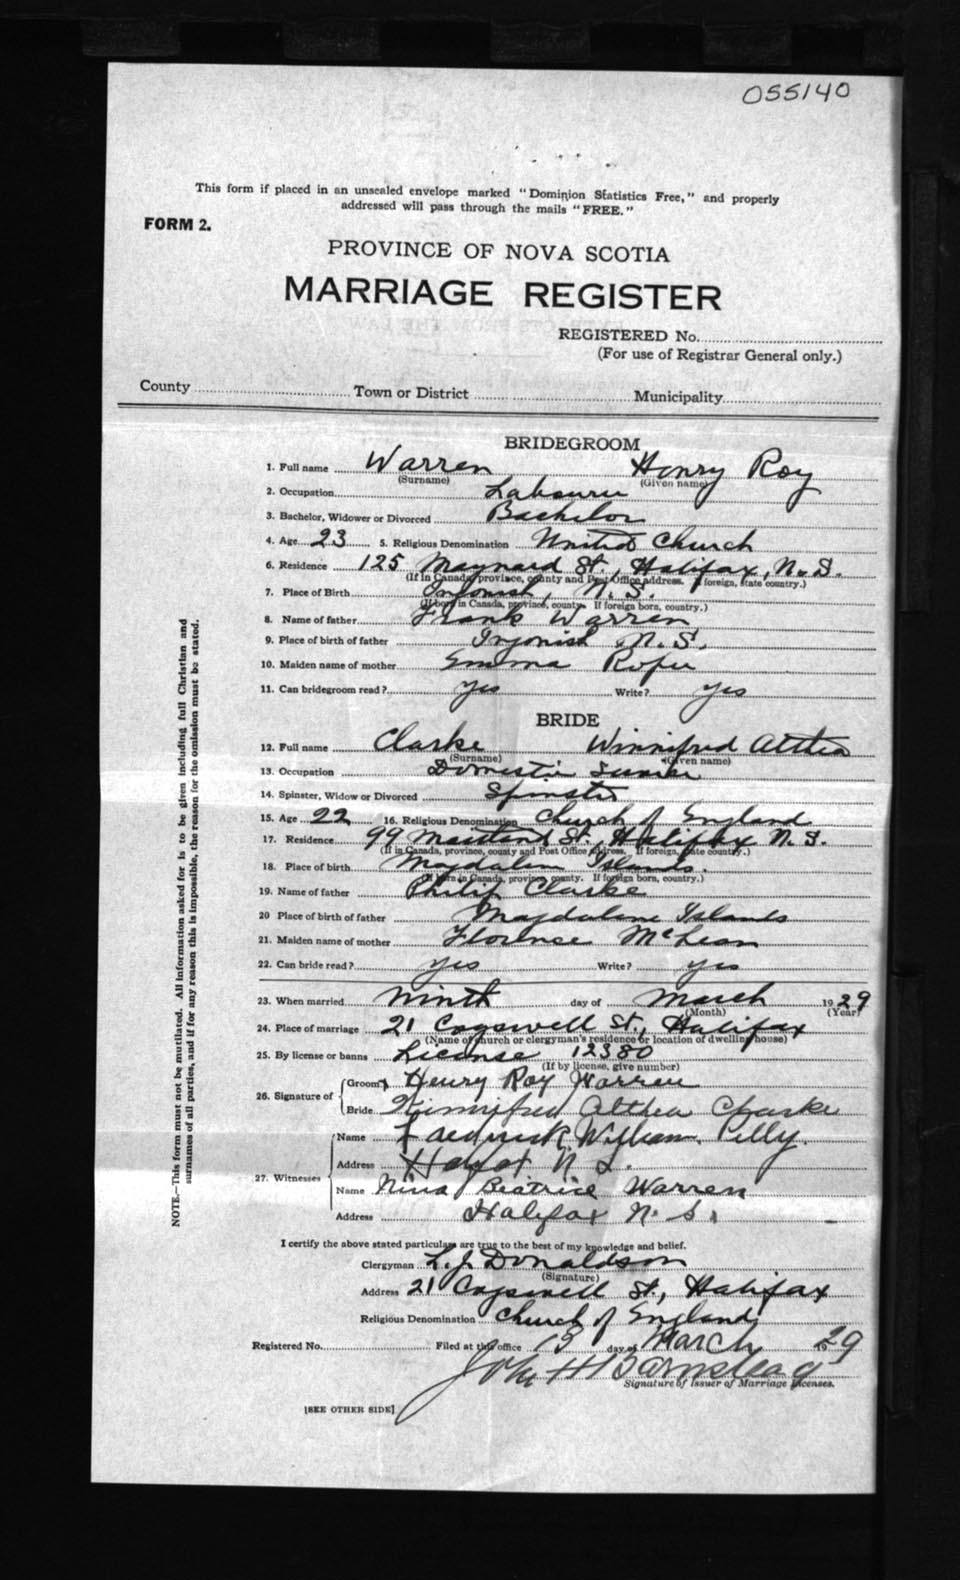 055140
This form if placed in an unsealed envelope marked "Dominion Statistics Free," and properly
addressed will pass through the mails "FREE."
FORM 2.
PROVINCE OF NOVA SCOTIA
MARRIAGE REGISTER
REGISTERED No.
(For use of Registrar General only.)
County Town or District Municipality
BRIDEGROOM
1. Full name Warren Henry Roy
(Surname) (Given name)
2. Occupation Labourer
3. Bachelor, Widower or Divorced Bachelor
4. Age 23 5. Religious Denomination United Church
6. Residence 125 Maynard St., Halifax, N.S.
(If in Canada, province, county and Post Office address. If foreign, state country.)
7. Place of Birth Ingonish, N.S.
(If born in Canada, province, county. If foreign born, country.)
8. Name of father Frank Warren
9. Place of birth of father Ingonish N.S.
10. Maiden name of mother Emma Roper
11. Can bridegroom read? yes Write? yes
BRIDE
12. Full name Clarke Winnifred Althea
(Surname) (Given name)
13. Occupation Domestic
14. Spinster, Widow or Divorced Spinster
15. Age 22 16. Religious Denomination Church of England
17. Residence 99 St., Halifax N.S.
(If in Canada, province, county and Post Office address. If foreign, state country.)
18. Place of birth Magdalen Islands.
(If born in Canada, province, county. If foreign born, country.)
19. Name of father Philip Clarke
20 Place of birth of father Magdalene Islands
21. Maiden name of mother Florence McLean
22. Can bride read? yes Write? yes
23. When married Ninth day of March 1929
(Month) (Year)
24. Place of marriage 21 Cogswell St., Halifax
(Name of church or clergyman's residence or location of dwelling house)
25. By license or banns License 12380
(If by license, give number)
26. Signature of Groom Henry Roy Warren
Bride Winnifred Althea Clarke
27. Witnesses Name William Pelly.
Address N S.
Name Nina Beatrice Warren
Address Halifax N.S.
I certify the above stated particulars are true to the best of my knowledge and belief.
Clergyman L. J. Donaldson
(Signature)
Address 21 Cogswell St., Halifax
Religious Denomination Church of England
Registered No. Filed at this office 13 day of March 1929
John H Barnstead
Signature of Issuer of Marriage Licenses.
[SEE OTHER SIDE]
NOTE.—This form must not be mutilated. All information asked for is to be given including full Christian and
surnames of all parties, and if for any reason this is impossible, the reason for the omission must be stated.